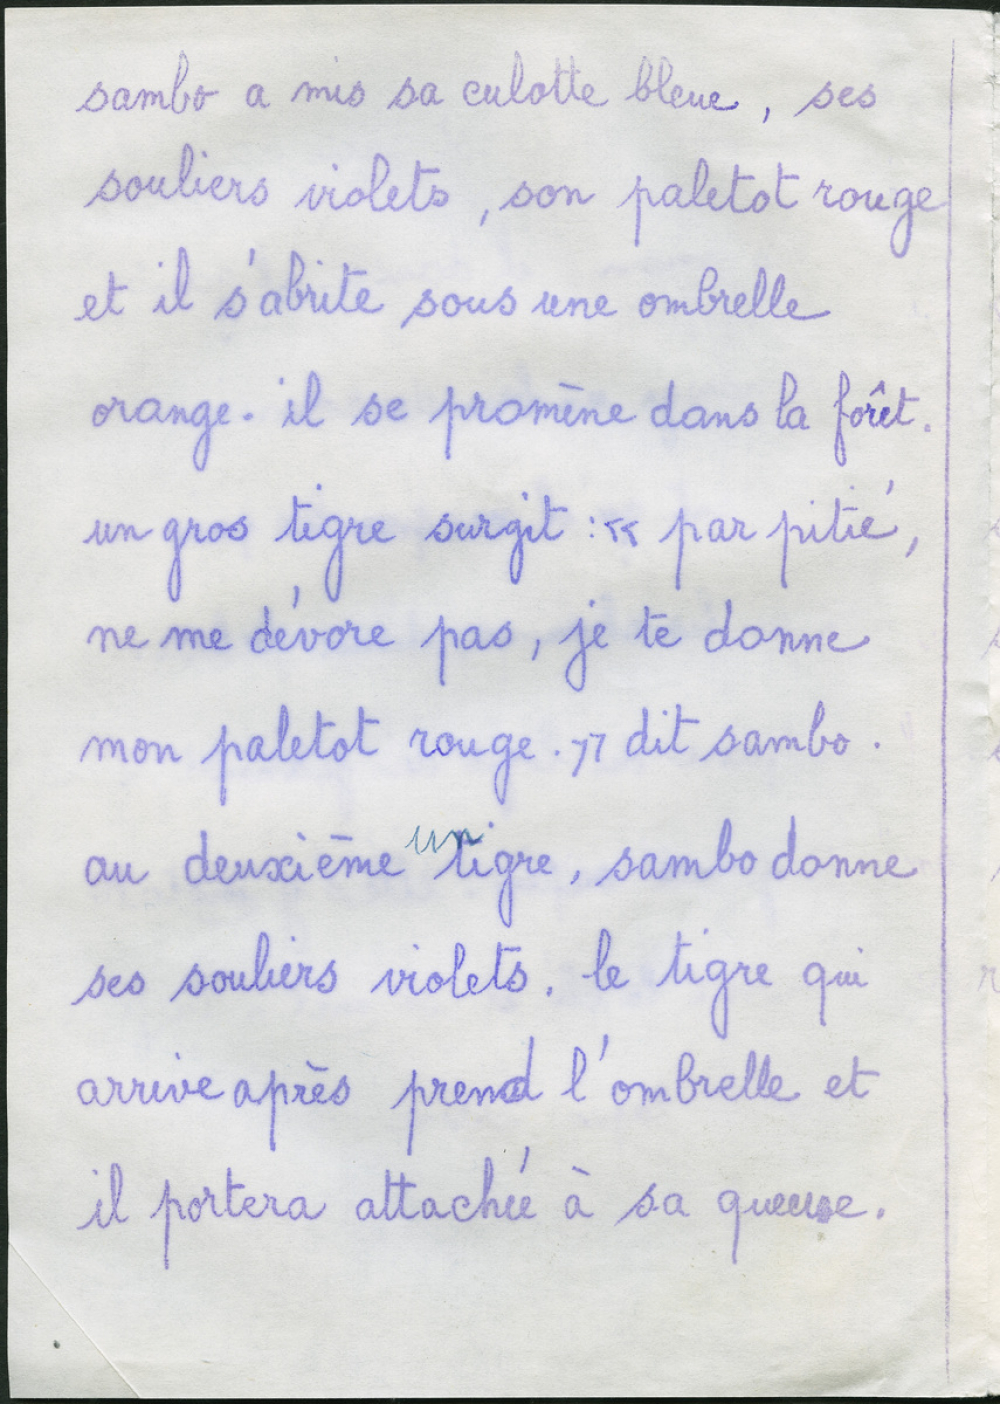 sambo a mis sa culotte bleue, ses
souliers violets, son paletot rouge
et il s'abrite sous une ombrelle
orange. il se promène dans la forêt.
un gros tigre surgit : « par pitié,
ne me dévore pas, je te donne
mon paletot rouge. » dit sambo.
un
au deuxième tigre, sambo donne
ses souliers violets. le tigre qui
arrive après prend l'ombrelle et
il portera attachée à sa queue.